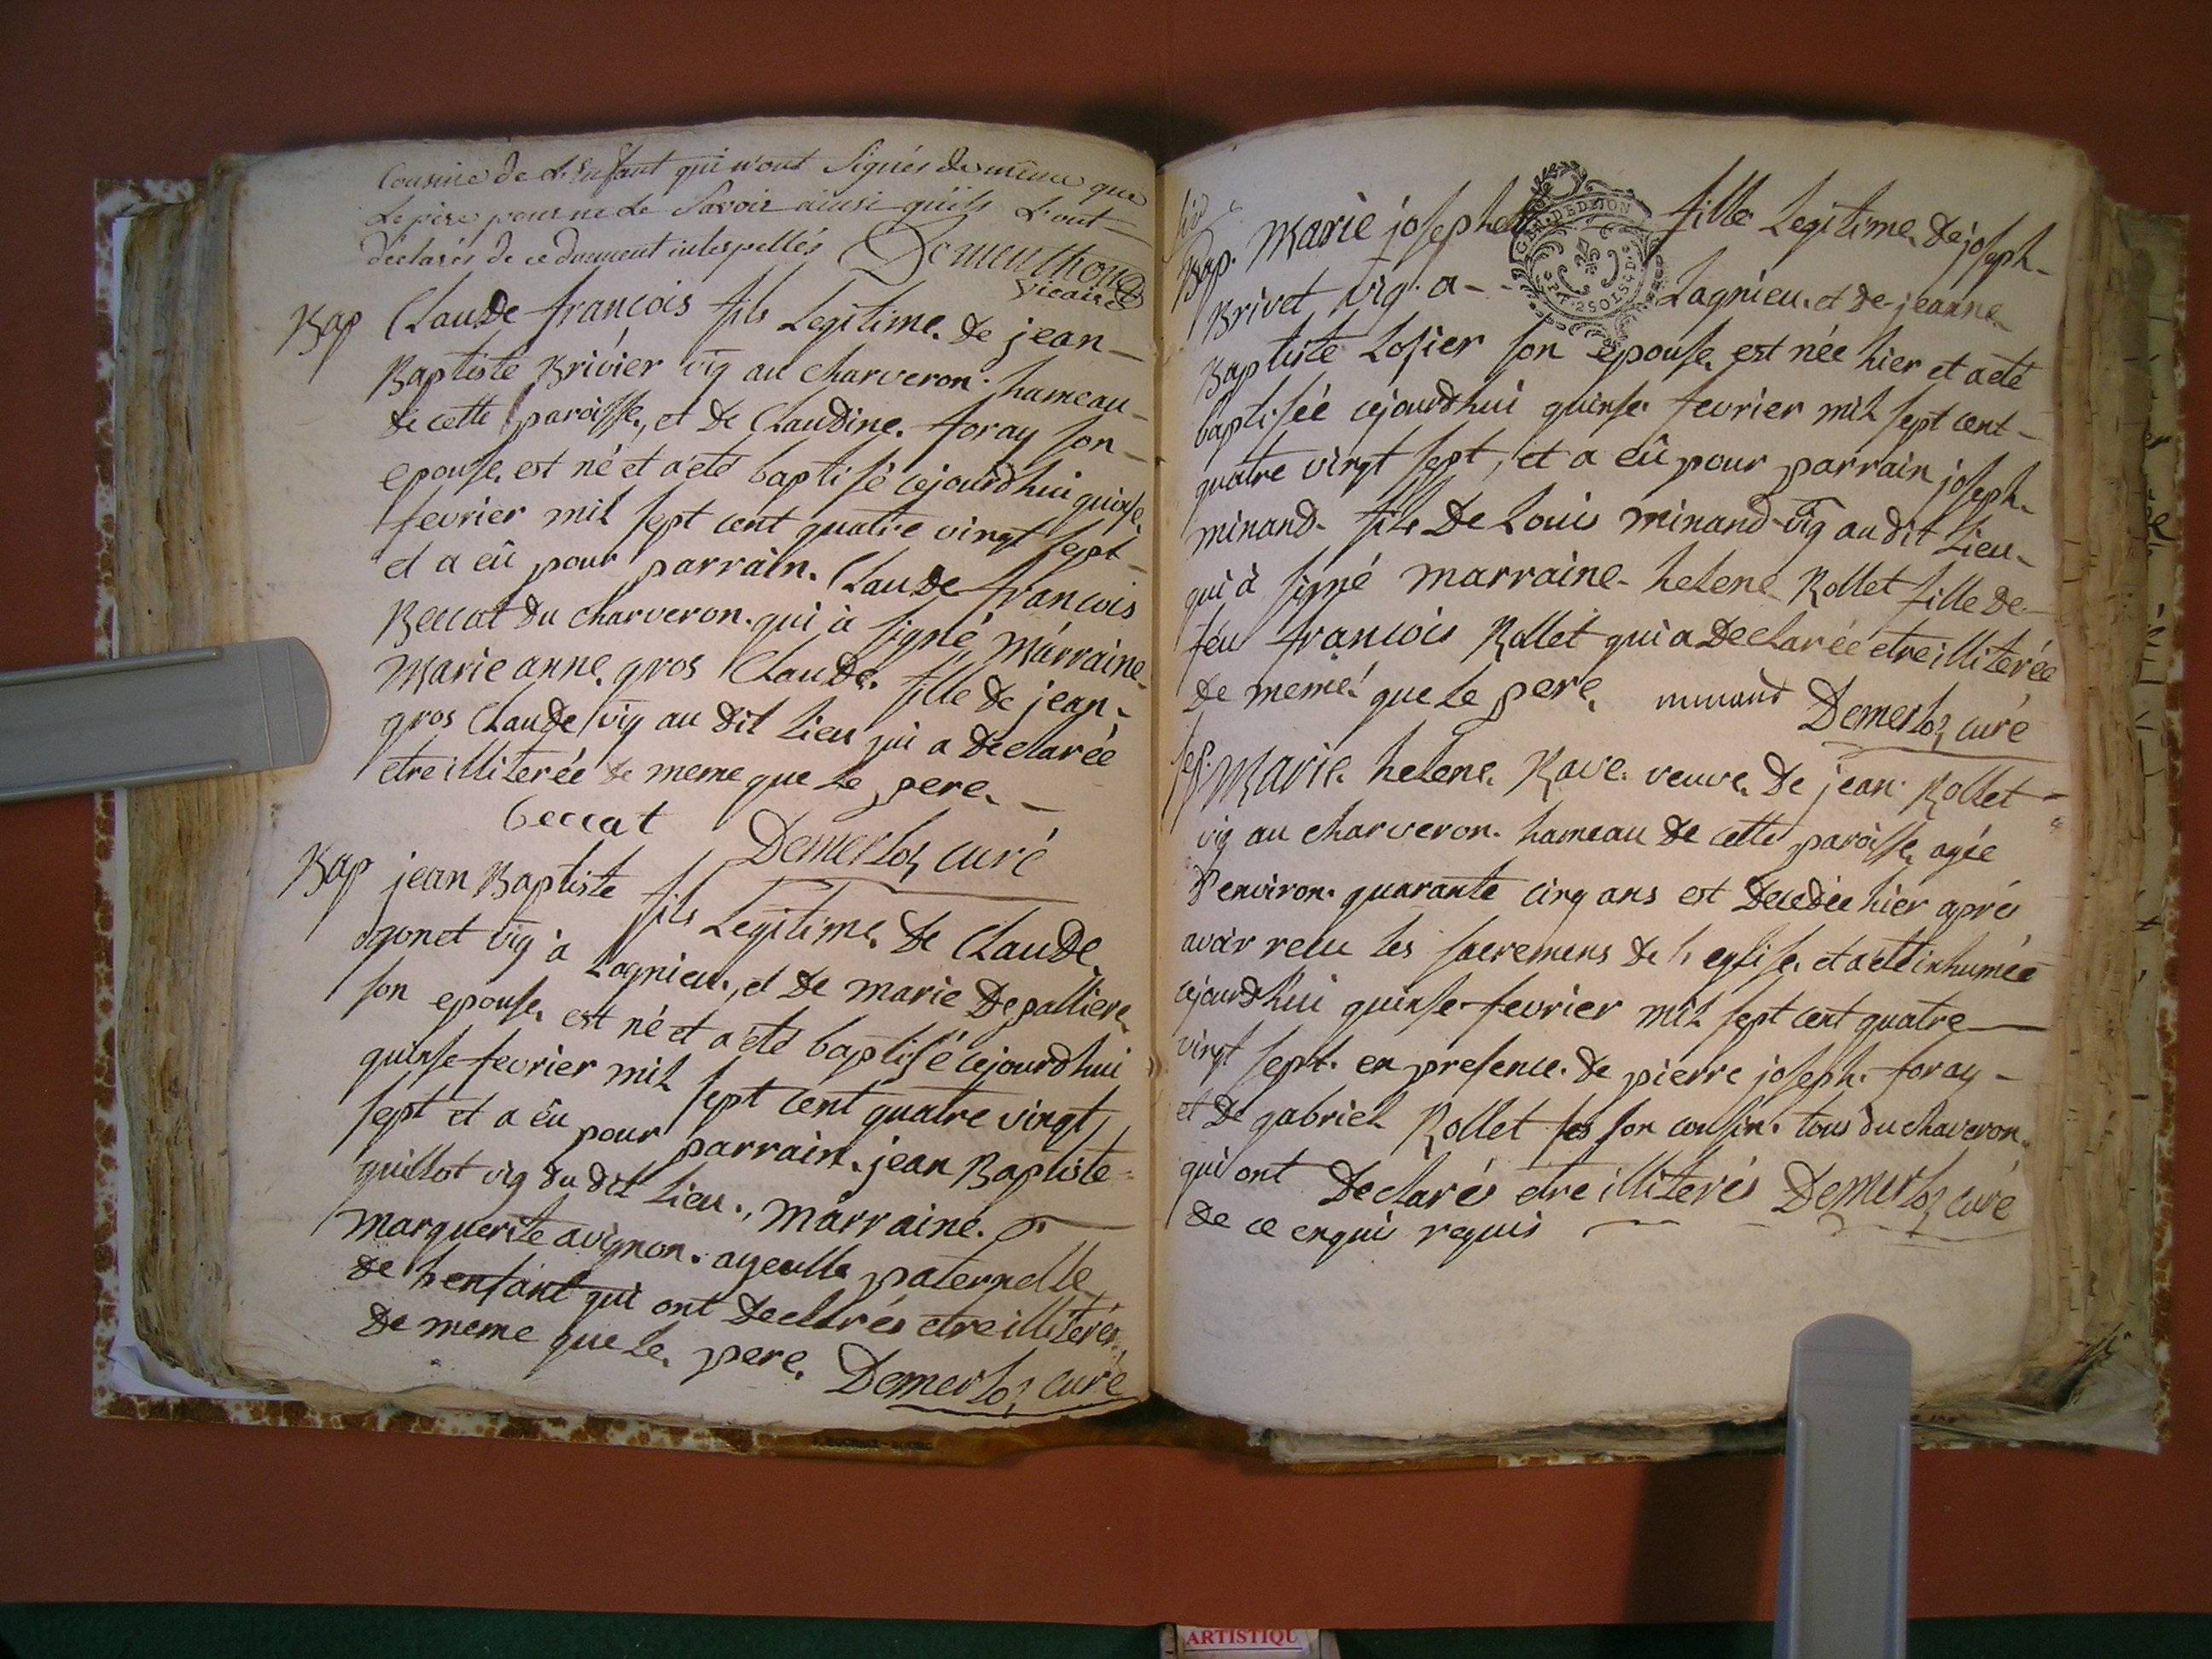 Cousine de L'Enfant qui n'ont Signés de même que
Le pere pour ne Le Savoir ainsi qu'ils L'ont
déclarés de ce duement interpellés Dementhon
vicaire
Bap Claude françois fils Legitime de jean
Baptiste Brivier vig au charveron hameau
de cette paroisse, et de Claudine foray son
epouse, est né et a eté baptisé cejourdhui quinse
fevrier mil sept cent quatre vingt sept
et a eû pour parrain Claude françois
Beccat du charveron qui à signé marraine
Marie anne gros Claude fille de jean
gros Claude vig au dit Lieu qui a declarée
etre illiterée de meme que Le pere
beccat Demerloz curé
Bap jean Baptiste fils Legitime de Claude
ogonet vig à Lagnieu, et de marie Depalliere
son epouse, est né et a eté baptisé cejourdhui
quinse fevrier mil sept cent quatre vingt
sept et a eû pour parrain jean Baptiste
guillot vig du dit Lieu, marraine
marguerite avignon ayeulle paternelle
de L'enfant qui ont declarés etre illiterés
de meme que Le pere Demerloz curé
Bap. Marie josephe fille Legitime de joseph
Brivet vig a Lagnieu et de jeanne
Baptiste Losier son epouse est née hier et a eté
baptisée cejourdhui quinse fevrier mil sept cent
quatre vingt sept, et a eû pour parrain joseph
minand fils de Louis minand vig au dit Lieu
qui à signé marraine helene Rollet fille de
feu francois Rollet qui a declarée etre illiterée
de meme que Le pere minand Demerloz curé
sep. Marie helene Rave veuve de jean Rollet
vig au charveron hameau de cette paroisse, agée
d'environ quarante cinq ans est decedée hier aprés
avoir recu les sacremens de L'eglise et a eté inhumée
cejourdhui quinse fevrier mil sept cent quatre
vingt sept en presence de pierre joseph foray
et de gabriel Rollet ses son cousin tous du chaveron
qui ont declarés etre illiterés Demerloz curé
de ce enquis requis
GEN. DE DIJON
2 SOLS
ARTISTIQU